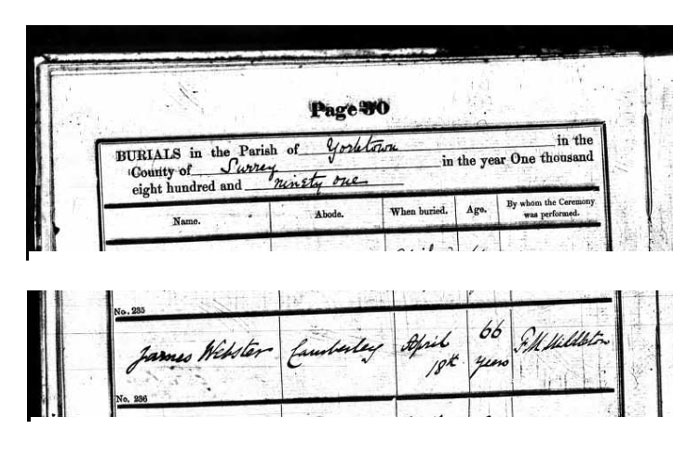 Page 30
BURIALS in the Parish of Yorktown in the
County of Surrey in the year One thousand
eight hundred and ninety one
Name. Abode. When buried. Age. By whom the Ceremony was performed.
No. 235
James Webster Camberley April 18th 66 years F M Middleton
No. 236